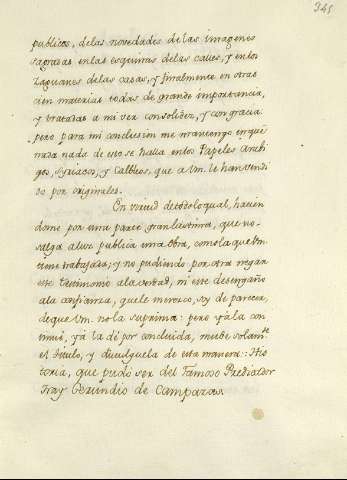 345
publicos, de las novedades de las Imagenes
sagradas en las esquinas de las calles, y en los
Zaguanes de las casas, y finalmente en otras
cien materias todas de grande importancia,
y tratadas a mi ver con solidez, y con gracia
pero para mi conclusion me mantengo en que
nada de esto se halla en los Papeles Arabi-
gos, Syriacos, y Caldeos, que a Vm. le han vendi
do por originales.
En virtud de todo lo qual, hacien
dome por una parte gran lastima, que no
salga a luz publica una obra, como la que Vm.
tiene trabajada; y no pudiendo por otra negar
este testimonio a la verdad, ni este desengaño
a la confianza, que le merezco, soy de parecer,
de que Vm. no la suprima: pero ya la con
tinue, ya la dé por concluida, mude solamte.
el titulo, y divulguela de esta manera: His
toria, que pudo ser del Famoso Predicador
Fray Gerundio de Campazas.